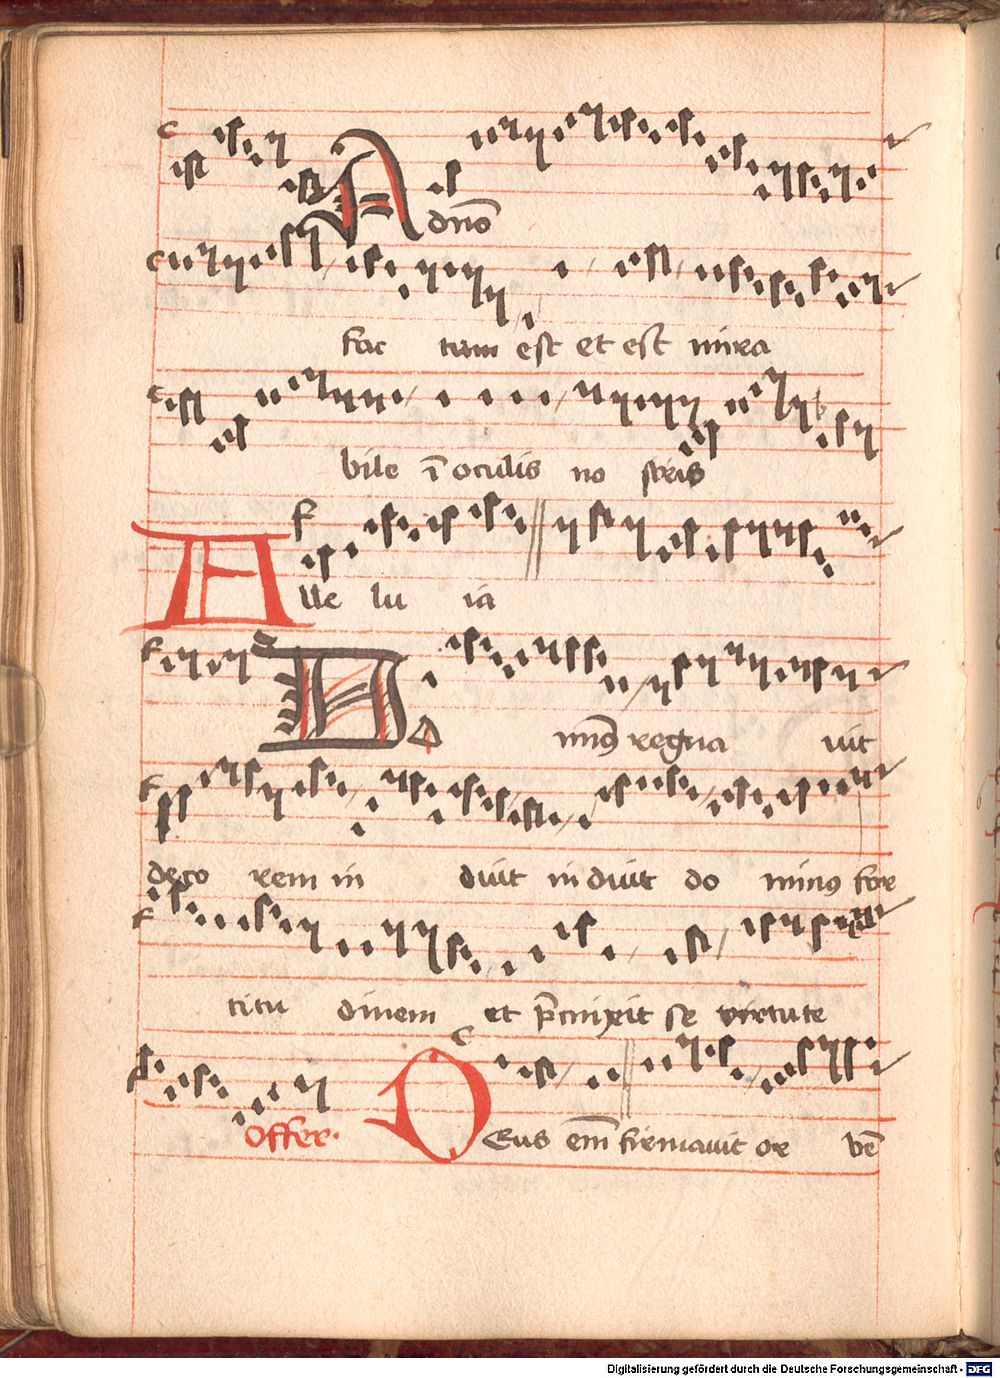 A dn̄o
fac tum est et est mira
bile ī oculis no stris
Alle lu ia
Do minꝰ regna uit
deco rem in duit induit do minꝰ for
titu dinem et p̄cinxit se virtute
Offer. Deus em̄ firmauit or bē
Digitalisierung gefördert durch die Deutsche Forschungsgemeinschaft - DFG